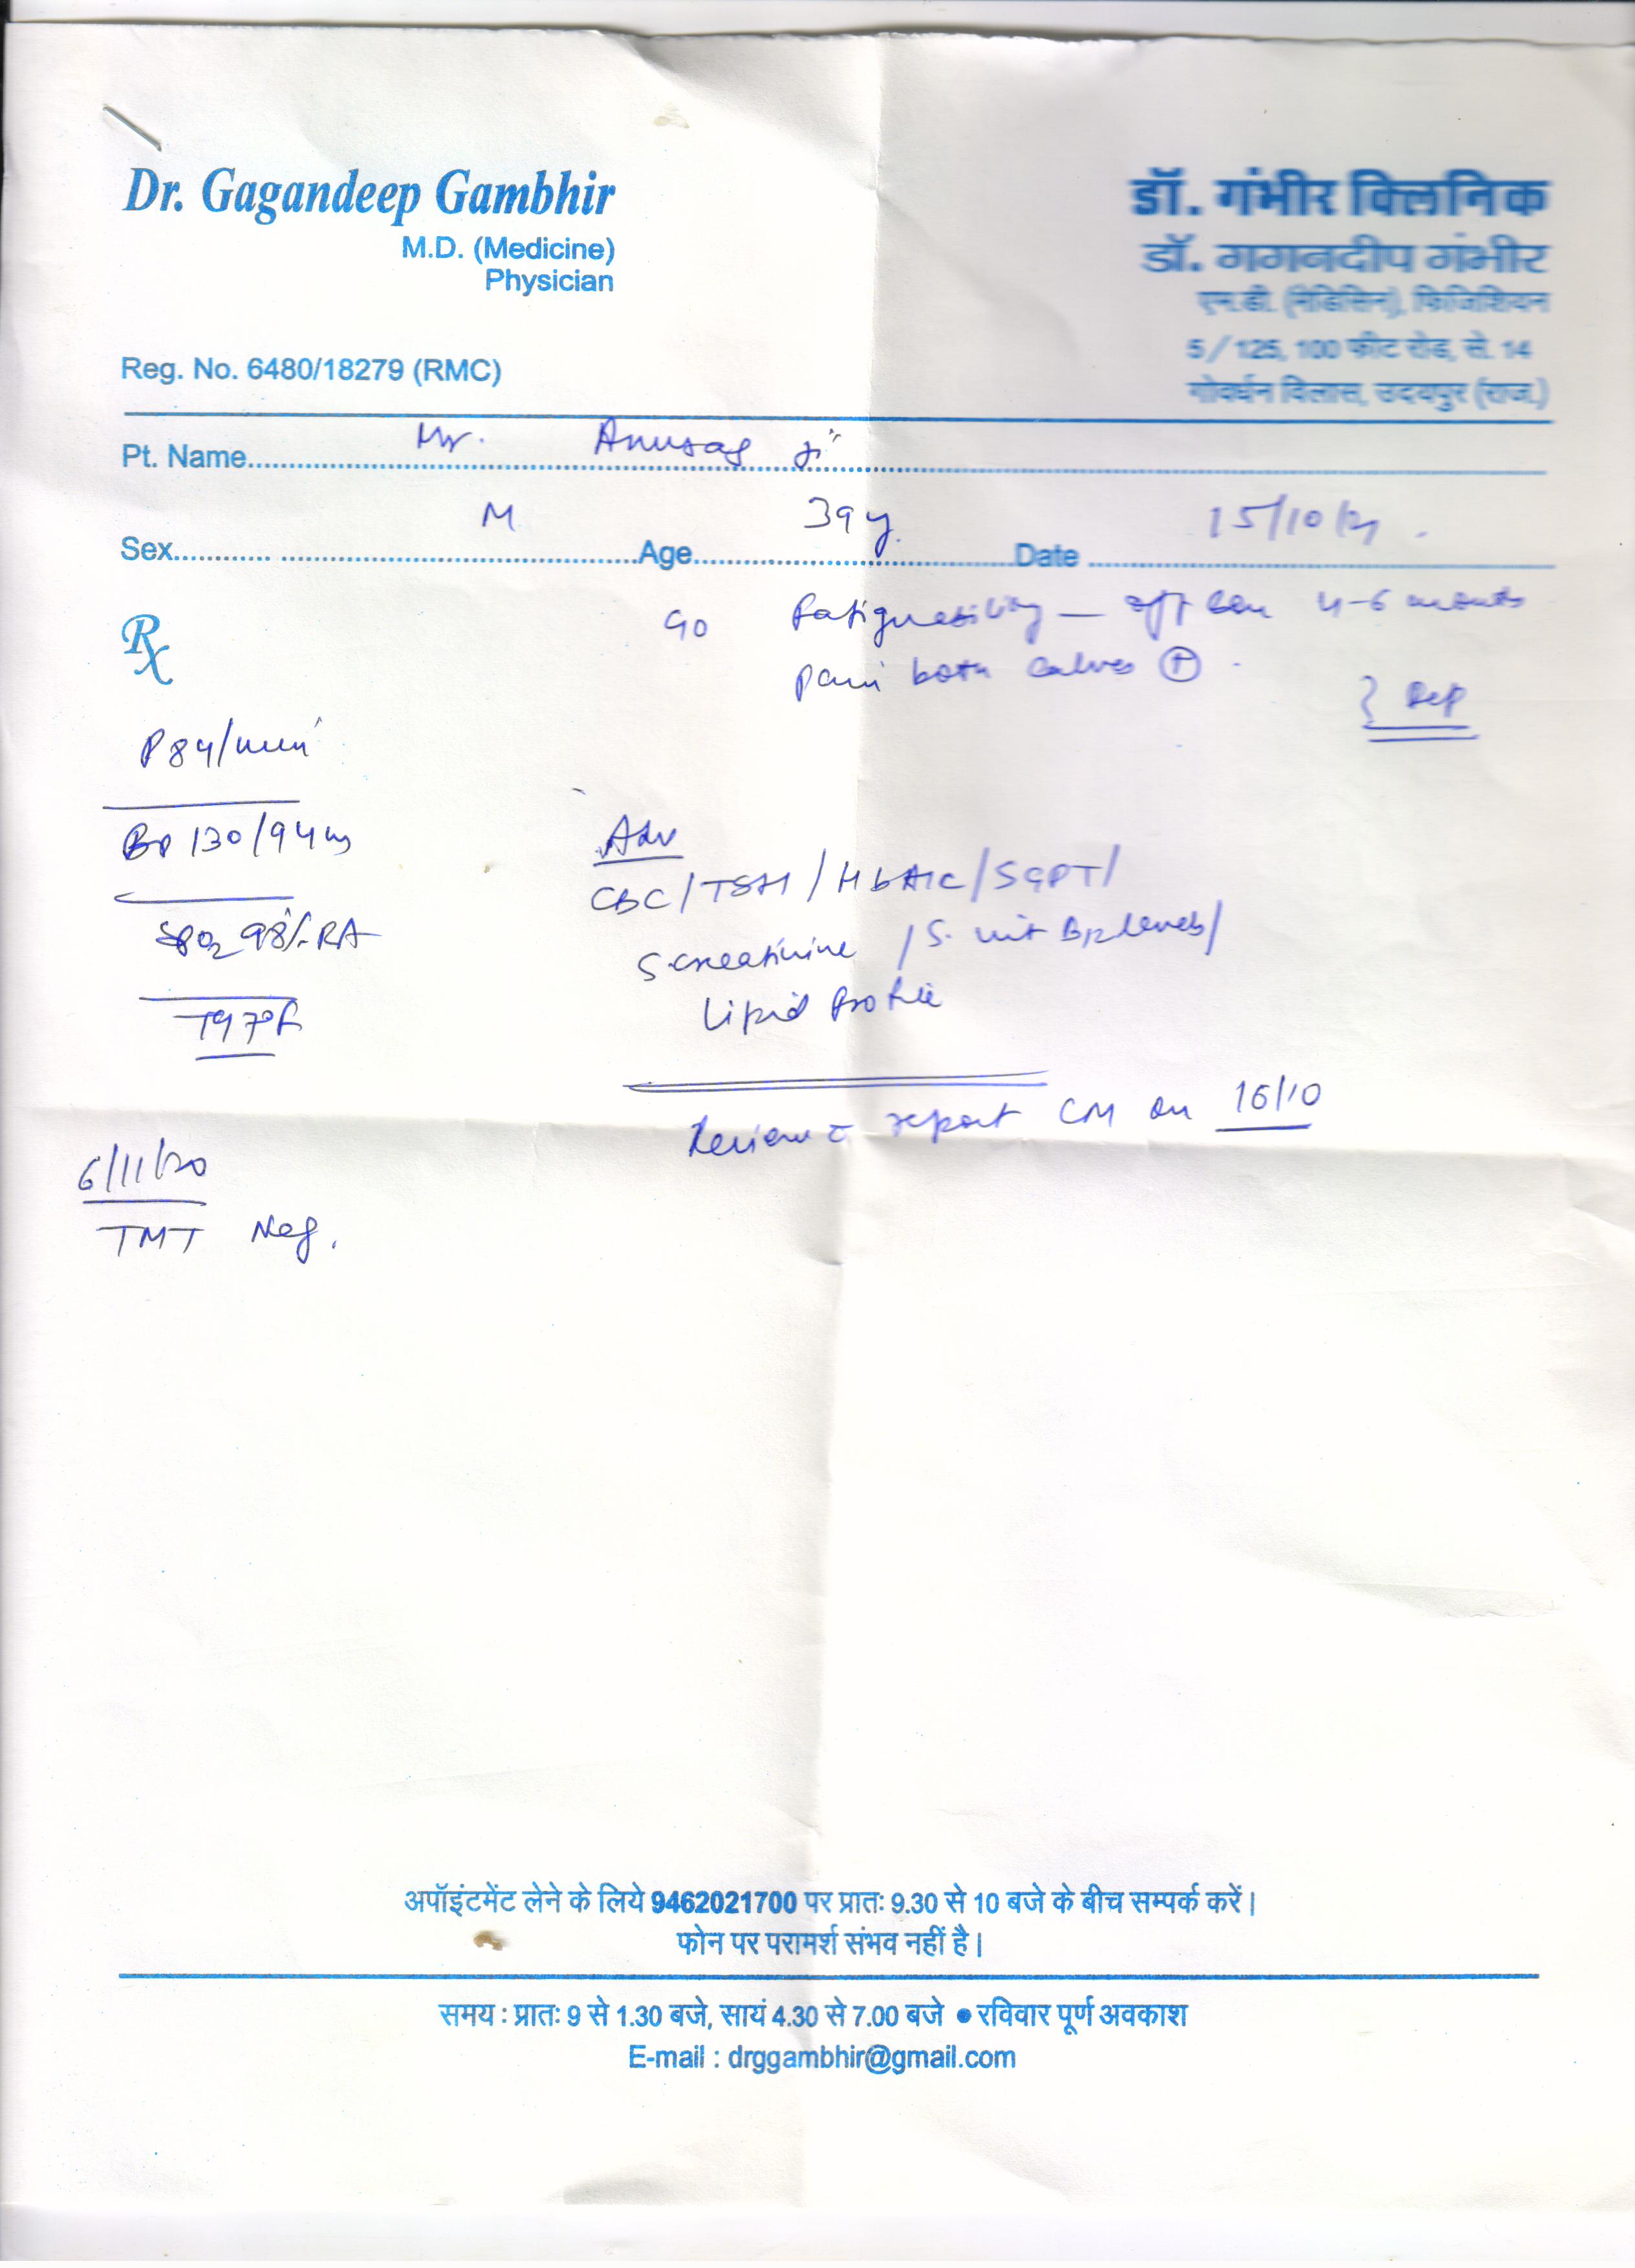 Dr. Gagandeep Gambhir
M.D. (Medicine)
Physician
Reg. No. 6480/18279 (RMC)
डॉ. गंभीर क्लिनिक
डॉ. गगनदीप गंभीर
एम.डी. (मेडिसिन), फिजिशियन
5/125, 100 फीट रोड, से. 14
गोवर्धन विलास, उदयपुर (राज.)
Pt. Name Mr. Anurag ji
Sex M Age 39 y. Date 15/10/21
Rx
C/o Fatiguability — off & on 4-6 months
pain both calves +
P 84/min
BP 130/94
SPO2 98% RA
T 97°F
Adv
CBC/TSH/HbA1C/SGPT/
S. creatinine / S. vit B12 levels/
Lipid Profile
Review c report CM on 16/10
6/11/20
TMT Neg.
अपॉइंटमेंट लेने के लिये 9462021700 पर प्रातः 9.30 से 10 बजे के बीच सम्पर्क करें।
फोन पर परामर्श संभव नहीं है।
समय : प्रातः 9 से 1.30 बजे, सायं 4.30 से 7.00 बजे ● रविवार पूर्ण अवकाश
E-mail : drggambhir@gmail.com